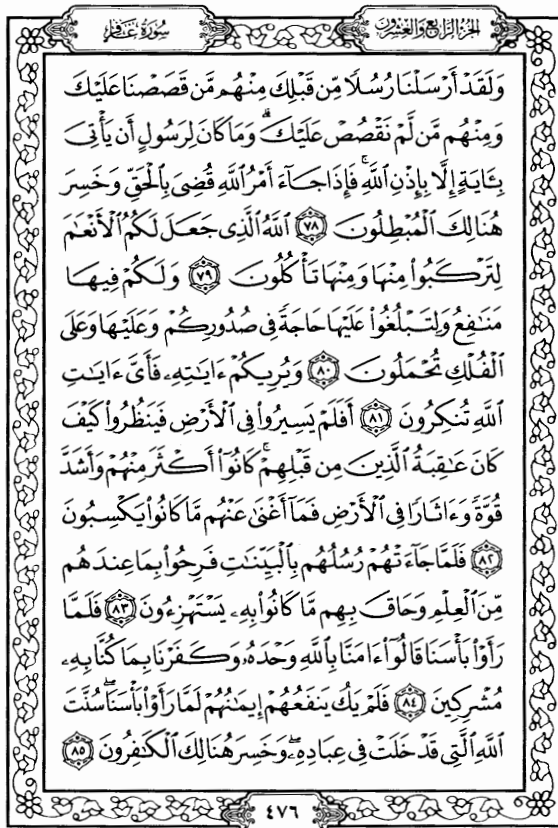 الجزء الرابع والعشرون
سورة غافر
وَلَقَدْ أَرْسَلْنَا رُسُلًا مِّن قَبْلِكَ مِنْهُم مَّن قَصَصْنَا عَلَيْكَ
وَمِنْهُم مَّن لَّمْ نَقْصُصْ عَلَيْكَ ۗ وَمَا كَانَ لِرَسُولٍ أَن يَأْتِيَ
بِـَٔايَةٍ إِلَّا بِإِذْنِ ٱللَّهِ ۚ فَإِذَا جَآءَ أَمْرُ ٱللَّهِ قُضِيَ بِٱلْحَقِّ وَخَسِرَ
هُنَالِكَ ٱلْمُبْطِلُونَ ٧٨ ٱللَّهُ ٱلَّذِى جَعَلَ لَكُمُ ٱلْأَنْعَٰمَ
لِتَرْكَبُوا۟ مِنْهَا وَمِنْهَا تَأْكُلُونَ ٧٩ وَلَكُمْ فِيهَا
مَنَٰفِعُ وَلِتَبْلُغُوا۟ عَلَيْهَا حَاجَةً فِى صُدُورِكُمْ وَعَلَيْهَا وَعَلَى
ٱلْفُلْكِ تُحْمَلُونَ ٨٠ وَيُرِيكُمْ ءَايَٰتِهِۦ فَأَىَّ ءَايَٰتِ
ٱللَّهِ تُنكِرُونَ ٨١ أَفَلَمْ يَسِيرُوا۟ فِى ٱلْأَرْضِ فَيَنظُرُوا۟ كَيْفَ
كَانَ عَٰقِبَةُ ٱلَّذِينَ مِن قَبْلِهِمْ ۚ كَانُوٓا۟ أَكْثَرَ مِنْهُمْ وَأَشَدَّ
قُوَّةً وَءَاثَارًا فِى ٱلْأَرْضِ فَمَآ أَغْنَىٰ عَنْهُم مَّا كَانُوا۟ يَكْسِبُونَ
٨٢ فَلَمَّا جَآءَتْهُمْ رُسُلُهُم بِٱلْبَيِّنَٰتِ فَرِحُوا۟ بِمَا عِندَهُم
مِّنَ ٱلْعِلْمِ وَحَاقَ بِهِم مَّا كَانُوا۟ بِهِۦ يَسْتَهْزِءُونَ ٨٣ فَلَمَّا
رَأَوْا۟ بَأْسَنَا قَالُوٓا۟ ءَامَنَّا بِٱللَّهِ وَحْدَهُۥ وَكَفَرْنَا بِمَا كُنَّا بِهِۦ
مُشْرِكِينَ ٨٤ فَلَمْ يَكُ يَنفَعُهُمْ إِيمَٰنُهُمْ لَمَّا رَأَوْا۟ بَأْسَنَا ۖ سُنَّتَ
ٱللَّهِ ٱلَّتِى قَدْ خَلَتْ فِى عِبَادِهِۦ ۖ وَخَسِرَ هُنَالِكَ ٱلْكَٰفِرُونَ ٨٥
٤٧٦